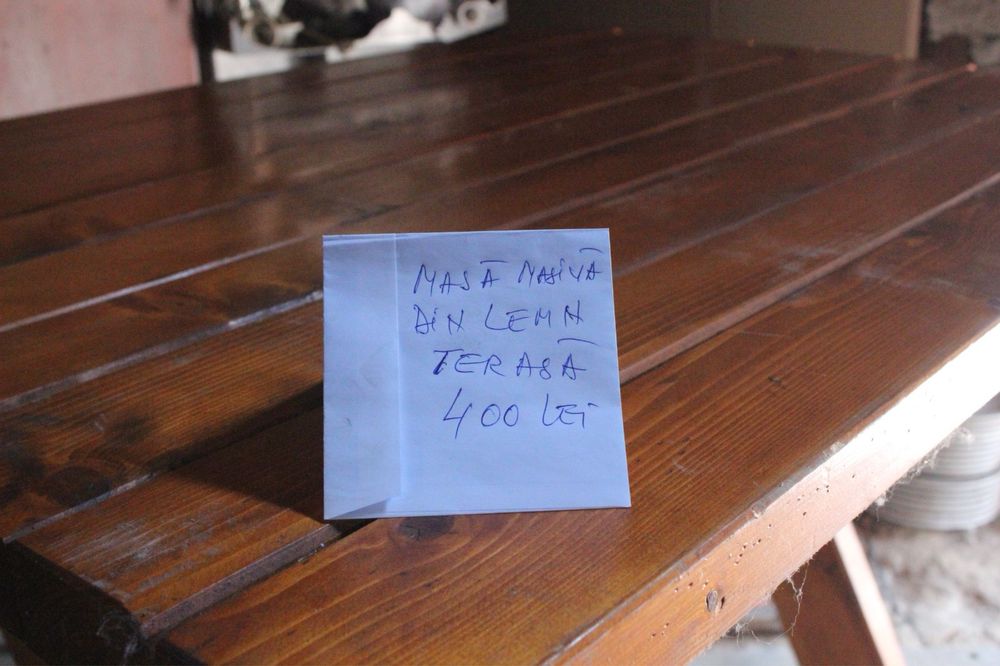 MASĀ MASiVĀ
DiN LEMN
TERASĀ
400 LEi